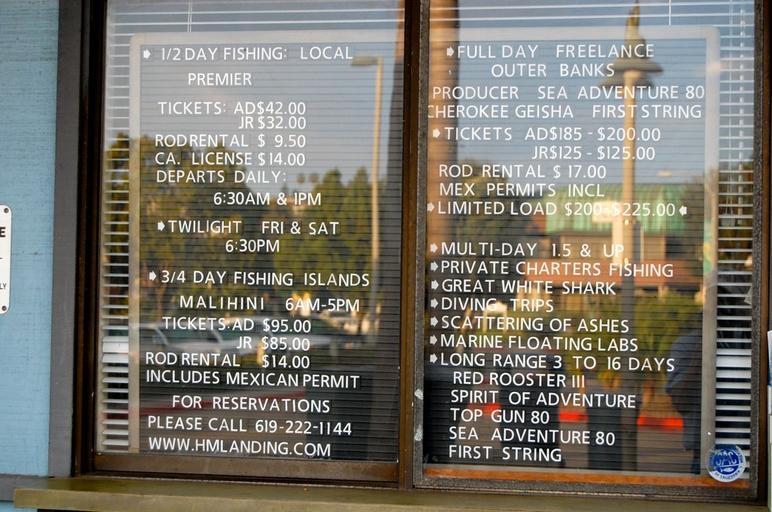 1/2 DAY FISHING: LOCAL
PREMIER
TICKETS: AD $42.00
JR $32.00
ROD RENTAL $ 9.50
CA. LICENSE $14.00
DEPARTS DAILY:
6:30AM & 1PM
TWILIGHT FRI & SAT
6:30PM
3/4 DAY FISHING ISLANDS
MALIHINI 6AM-5PM
TICKETS: AD $95.00
JR $85.00
ROD RENTAL $14.00
INCLUDES MEXICAN PERMIT
FOR RESERVATIONS
PLEASE CALL 619-222-1144
WWW.HMLANDING.COM
FULL DAY FREELANCE
OUTER BANKS
PRODUCER SEA ADVENTURE 80
CHEROKEE GEISHA FIRST STRING
TICKETS AD$185 - $200.00
JR$125 - $125.00
ROD RENTAL $ 17.00
MEX PERMITS INCL
LIMITED LOAD $200-$225.00
MULTI-DAY 1.5 & UP
PRIVATE CHARTERS FISHING
GREAT WHITE SHARK
DIVING TRIPS
SCATTERING OF ASHES
MARINE FLOATING LABS
LONG RANGE 3 TO 16 DAYS
RED ROOSTER III
SPIRIT OF ADVENTURE
TOP GUN 80
SEA ADVENTURE 80
FIRST STRING